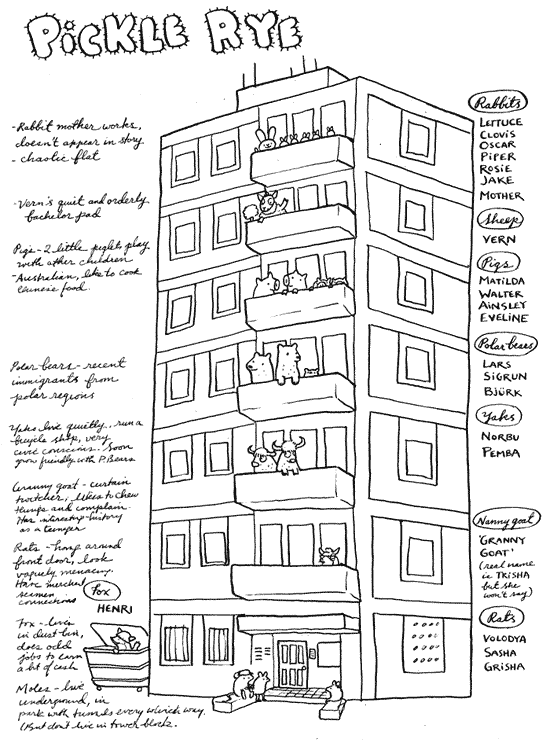 PiCKLE RYE
-Rabbit mother works,
doesn't appear in story
- chaotic flat
-Vern's quiet and orderly
bachelor pad
Pigs - 2 little piglets play
with other children
-Australian, like to cook
Chinese food.
Polar bears - recent
immigrants from
polar regions
Yaks live quietly, run a
bicycle shop, very
civic conscious. Soon
grow friendly with P. Bears
Granny goat - curtain
twitcher, likes to chew
things and complain.
Has interesting history
as a
Rats - hang around
front door, look
vaguely menacing.
Have merchant
seamen
connections
Fox
HENRI
Fox - lives
in dust-bin,
does odd
jobs to earn
a bit of cash
Moles - live
underground, in
park with tunnels every which way.
(But don't live in tower block.
Rabbits
LETTUCE
CLOViS
OSCAR
PiPER
ROSiE
JAKE
MOTHER
Sheep
VERN
Pigs
MATiLDA
WALTER
AiNSLEY
EVELiNE
Polar bears
LARS
SiGRUN
BJÜRK
Yaks
NORBU
PEMBA
Nanny goat
'GRANNY
GOAT'
(real name
is TRiSHA
but she
won't say)
Rats
VOLODYA
SASHA
GRiSHA